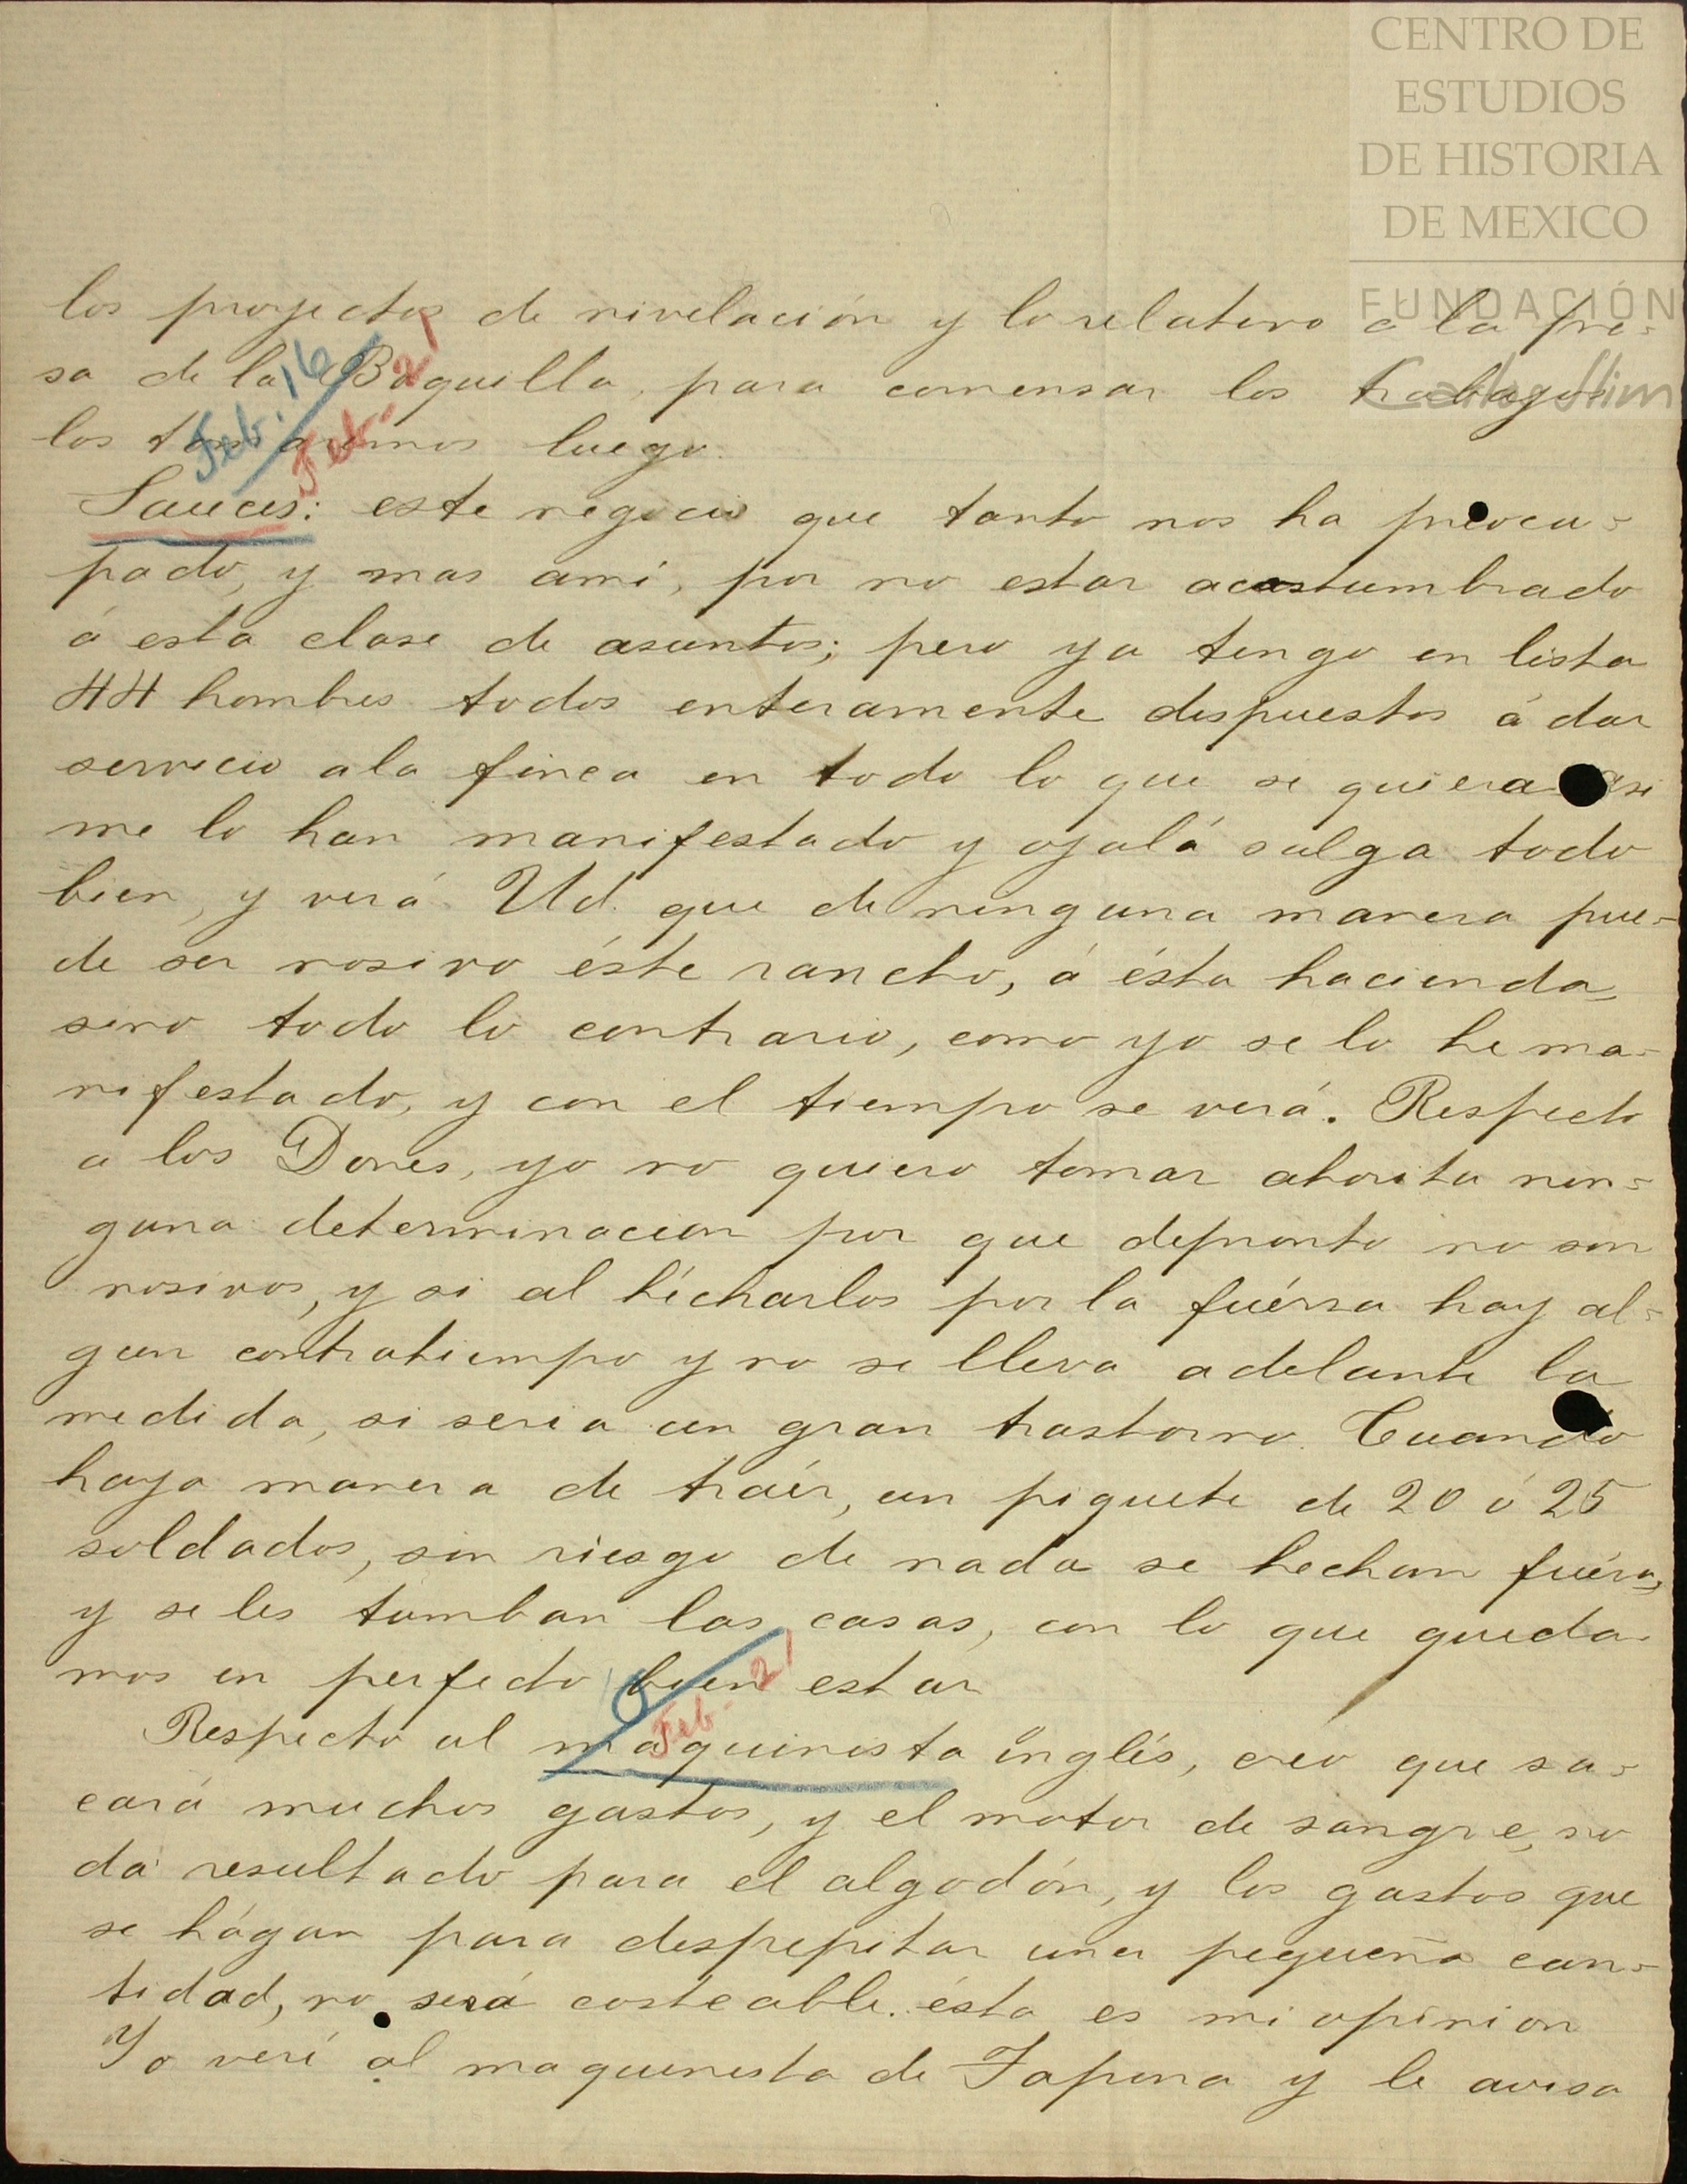 CENTRO DE
ESTUDIOS
DE HISTORIA
DE MEXICO
FUNDACIÓN
los proyectos de nivelación y lo relativo a la pre-
sa de la Boquilla, para comensar los trabajos
los luego.
Feb. 16
Feb. 21
Sauces: este negocio que tanto nos ha preocu-
pado, y mas ami, por no estar acostumbrado
á esta clase de asuntos; pero ya tengo en lista
44 hombres todos enteramente dispuestos á dar
servicio ala finca en todo lo que se quiera asi
me lo han manifestado y ojalá salga todo
bien, y verá Ud. que de ninguna manera pue-
de ser nosivo éste rancho, á ésta hacienda,
sino todo lo contrario, como yo se lo he ma-
nifestado, y con el tiempo se verá. Respecto
a los Dones, yo no quiero tomar ahorita nin-
guna determinacion por que depronto no son
nosivos, y si al hécharlos por la fuérsa hay al-
gun contratiempo y no se lleva adelante la
medida, si seria un gran trastorno. Cuando
haya manera de tráer, un piquete de 20 ó 25
soldados, sin riesgo de nada se hechan fuéra,
y se les tumban las casas, con lo que queda-
mos en perfecto bien estar
Feb. 21
Respecto al maquinista inglés, créo que sa-
cará muchos gastos, y el motor de sangre, no
dá resultado para el algodón, y los gastos que
se hágan para despepitar una pequeña can-
tidad, no será costeable. ésta es mi opinion
Yo veré al maquinista de Tapona y le aviso